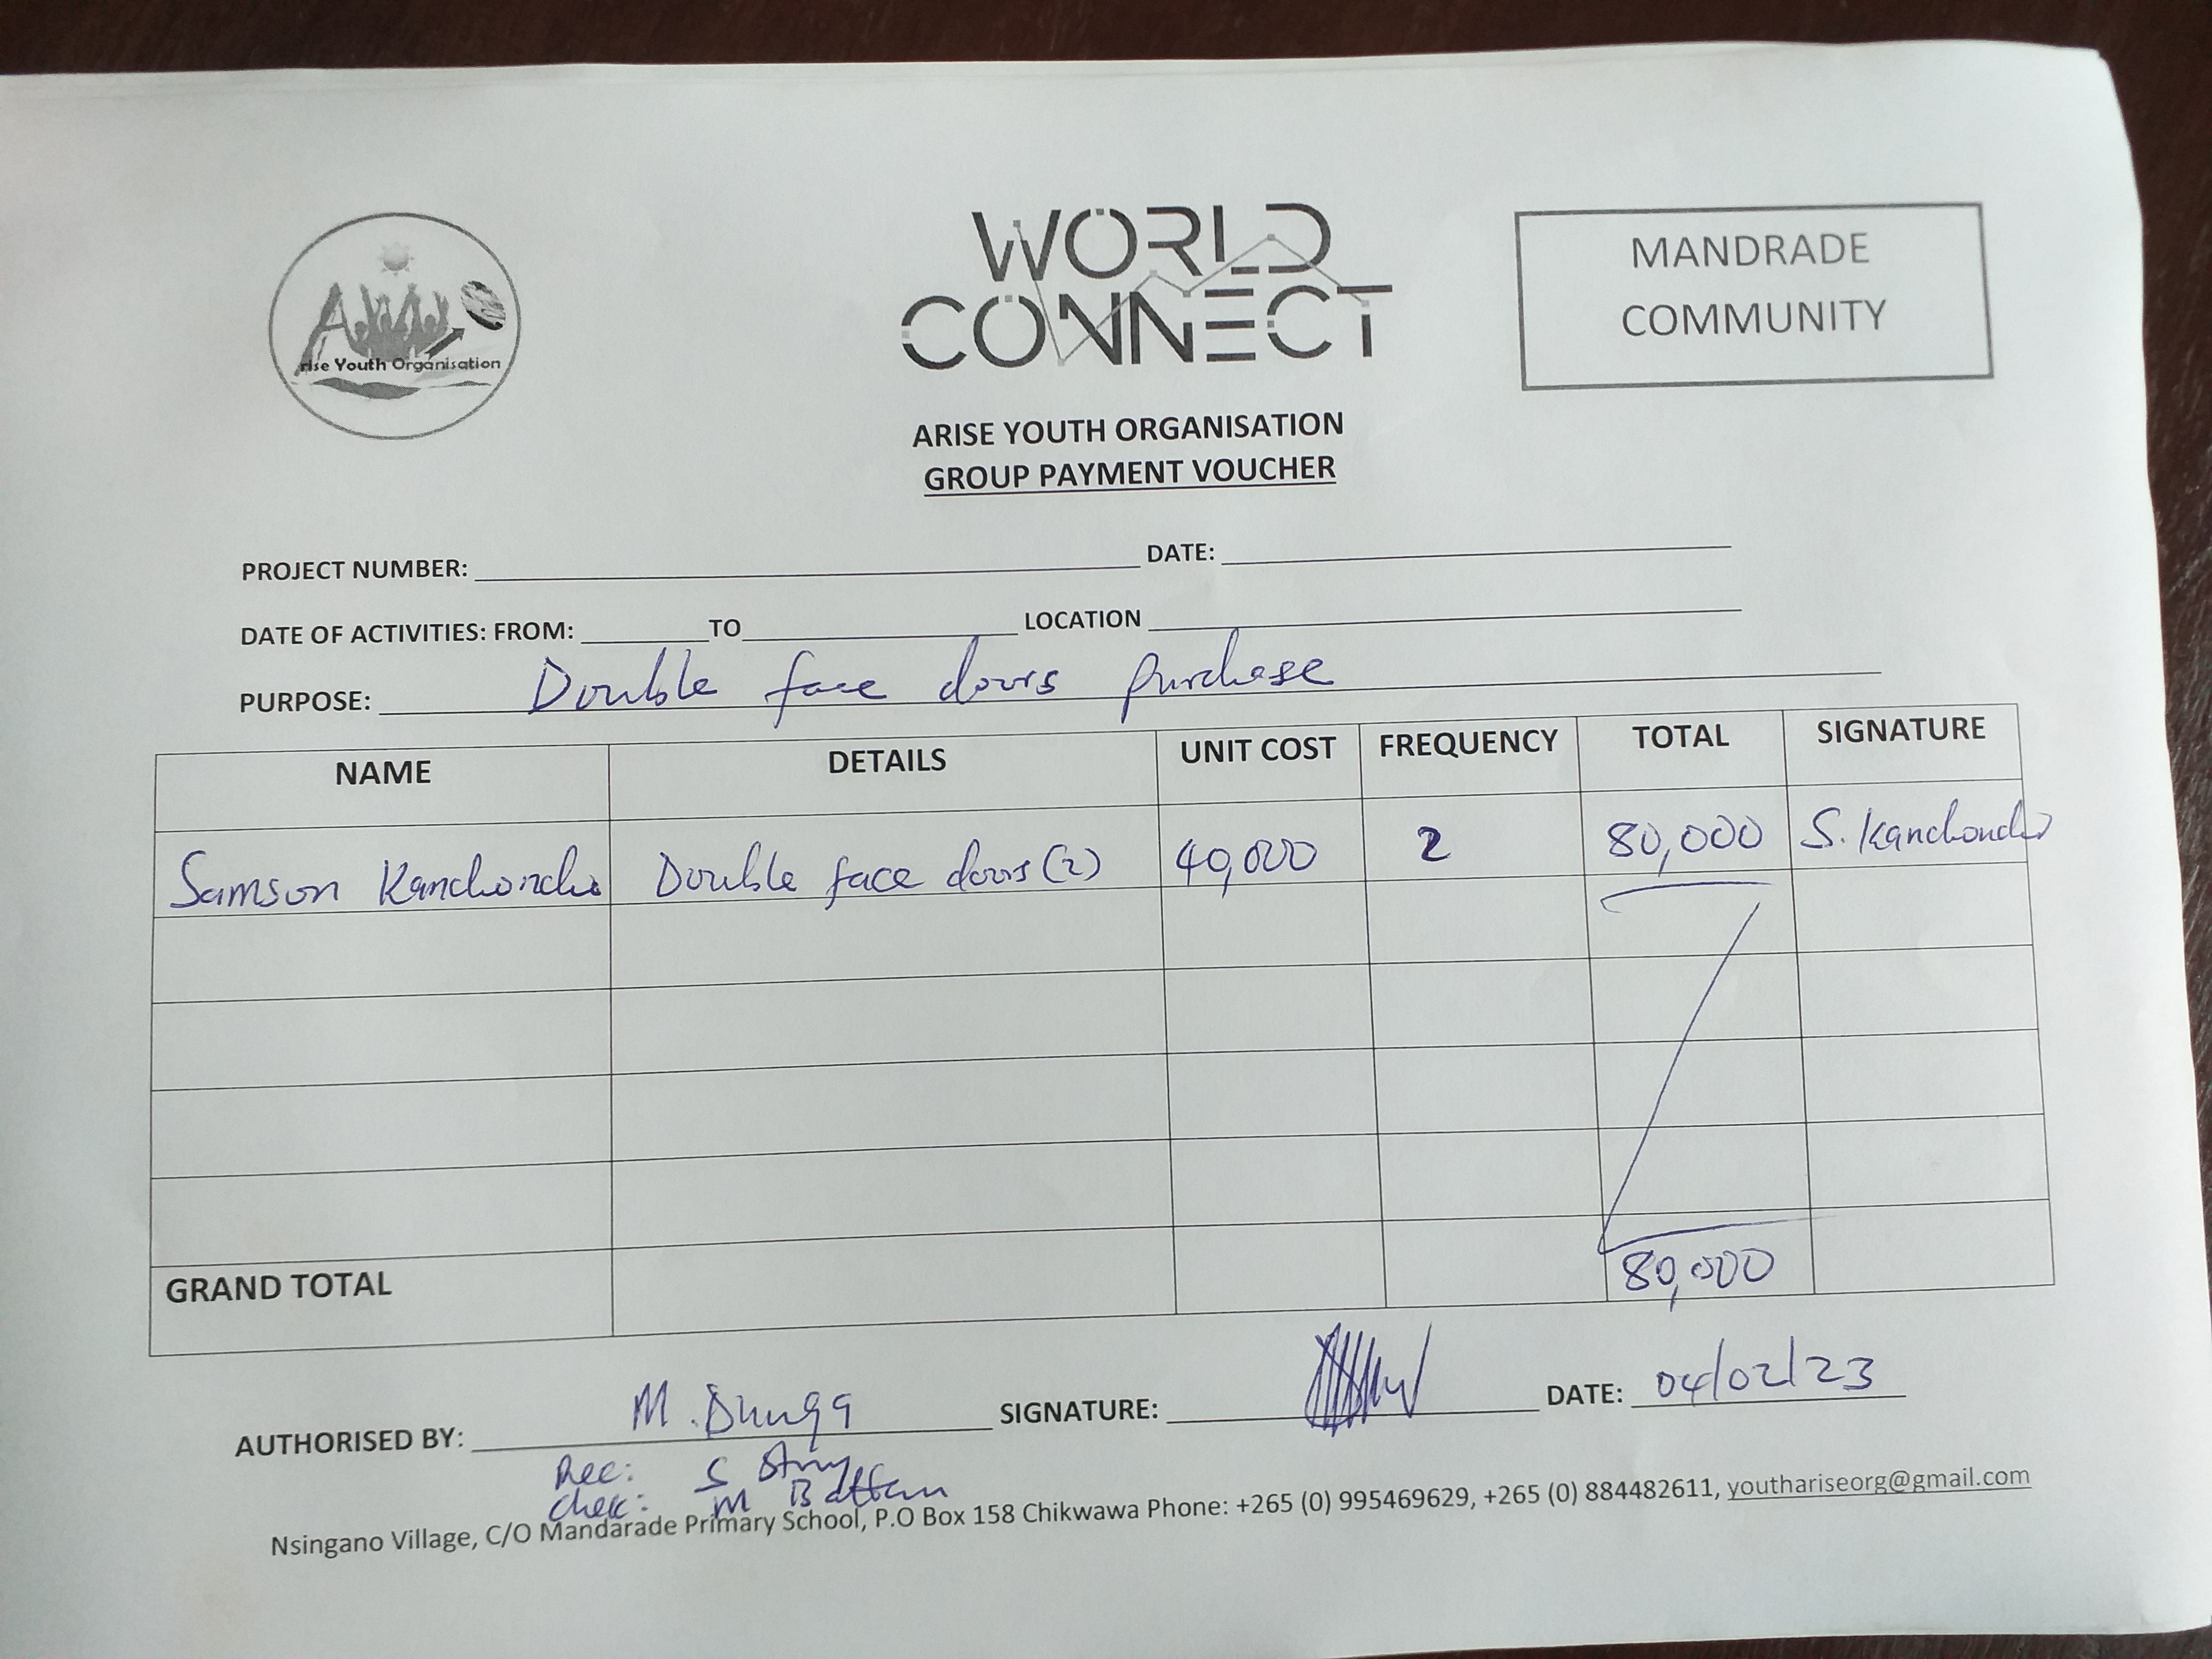 WORLD
CONNECT
MANDRADE
COMMUNITY
rise Youth Organisation
ARISE YOUTH ORGANISATION
GROUP PAYMENT VOUCHER
PROJECT NUMBER: DATE:
DATE OF ACTIVITIES: FROM: TO LOCATION
PURPOSE: Double face doors purchase
NAME DETAILS UNIT COST FREQUENCY TOTAL SIGNATURE
Samson Kanchoncho Double face doors (2) 40,000 2 80,000 S. Kanchoncho
GRAND TOTAL 80,000
AUTHORISED BY: M. SIGNATURE: DATE: 04/02/23
Rec: S
Chec: M
Nsingano Village, C/O Mandarade Primary School, P.O Box 158 Chikwawa Phone: +265 (0) 995469629, +265 (0) 884482611, youthariseorg@gmail.com